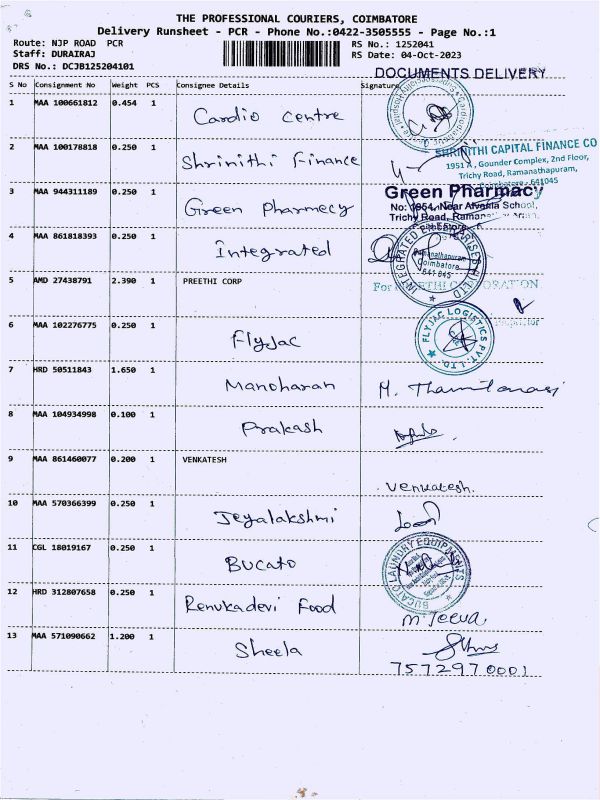 THE PROFESSIONAL COURIERS, COIMBATORE
Delivery Runsheet - PCR - Phone No.:0422-3505555 - Page No.:1
Route: NJP ROAD PCR RS No.: 1252041
Staff: DURAIRAJ RS Date: 04-Oct-2023
DRS No.: DCJB125204101
DOCUMENTS DELIVERY
S No Consignment No Weight PCS Consignee Details Signature
1 MAA 100661812 0.454 1 Cardio Centre
2 MAA 100178818 0.250 1 Shrinithi Finance
SHRINITHI CAPITAL FINANCE CO
1951 A, Gounder Complex, 2nd Floor,
Trichy Road, Ramanathapuram,
Coimbatore - 641045
3 MAA 944311189 0.250 1 Green Pharmecy
Green Pharmacy
No: 1954, Near Alvernia School,
Trichy Road,
4 MAA 861818393 0.250 1 Integrated
INTEGRATED ENTERPRISES
Ramanathapuram
Coimbatore
641 045
5 AMD 27438791 2.390 1 PREETHI CORP
For PREETHI CORPORATION
Proprietor
6 MAA 102276775 0.250 1 Flyjac
FLYJAC LOGISTICS PVT. LTD.
7 HRD 50511843 1.650 1 Manoharan M. Thamilarasi
8 MAA 104934998 0.100 1 Prakash
9 MAA 861460077 0.200 1 VENKATESH Venkatesh.
10 MAA 570366399 0.250 1 Jeyalakshmi
11 CGL 18019167 0.250 1 Bucato
BUCATO LAUNDRY EQUIPMENTS
12 HRD 312807658 0.250 1 Renukadevi Food M. Jeeva
13 MAA 571090662 1.200 1 Sheela
7572970001